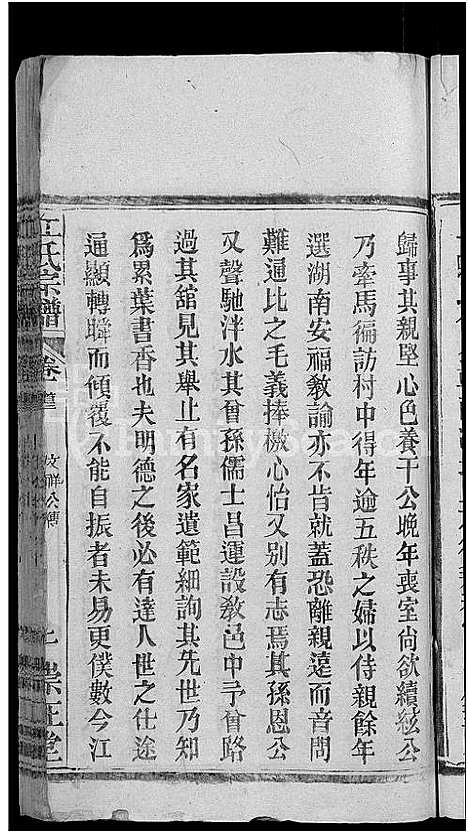 歸事其親堅心色養干公晚年喪室尙欲續絃公
乃牽馬徧訪村中得年逾五秩之婦以侍親餘年
選湖南安福敎諭亦不皆就蓋恐離親遠而音問
難通比之毛義捧檄心怡又別有志焉其孫恩公
又聲馳泮水其曾孫儒士昌運設敎邑中予曾路
過其舘見其舉止有名家遺範細詢其先世乃知
爲累葉書香也夫明德之後必有達人世之仕途
通顯轉瞬而傾覆不能自振者未易更僕數今江
江氏宗譜
卷首
崇正堂
FamilySearch